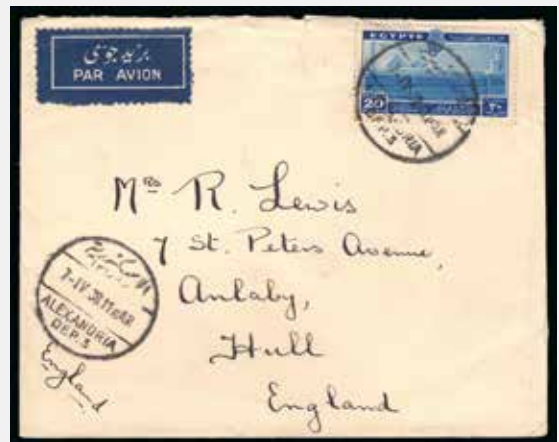 بريد جوي
PAR AVION
EGYPTE
20
٢٠
ALEXANDRIA
DEP. 3
Mrs R. Lewis
7 St. Peters Avenue,
Anlaby,
Hull
England
7-IV 38
ALEXANDRIA
DEP. 3
England